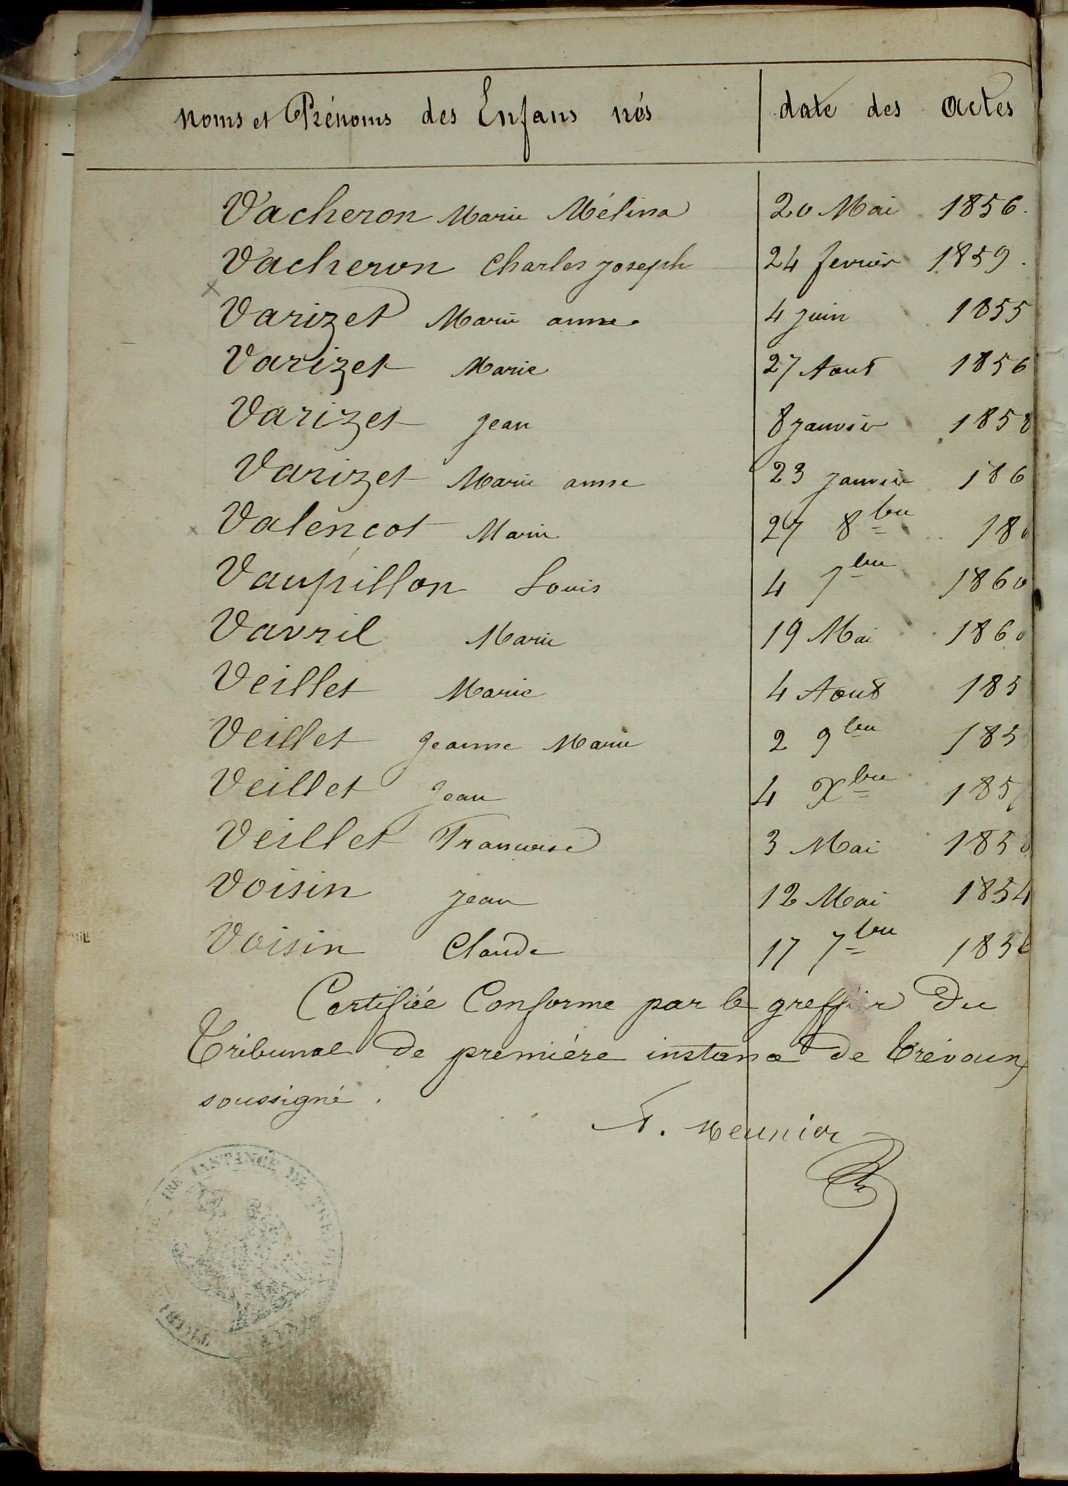 Noms et Prénoms des Enfans nés date des actes
Vacheron Marie Mélina 20 Mai 1856.
Vacheron Charles Joseph 24 fevrier 1859.
Varizet Marie anne 4 juin 1855
Varizet Marie 27 Aout 1856
Varizet Jean 8 janvier 1858
Varizet Marie anne 23 janvier 186
Valencot Marie 27 8bre 18
Vaupillon Louis 4 7bre 1860
Vavril Marie 19 Mai 1860
Veillet Marie 4 Aout 185
Veillet Jeanne Marie 2 9bre 185
Veillet Jean 4 Xbre 185
Veillet Francoise 3 Mai 185
Voisin Jean 12 Mai 1854
Voisin Claude 17 7bre 185
Certifiée Conforme par le greffier Du
Tribunal De premiére instance De Trévoux
soussigné.
Meunier
1RE INSTANCE DE TRE
TRIB